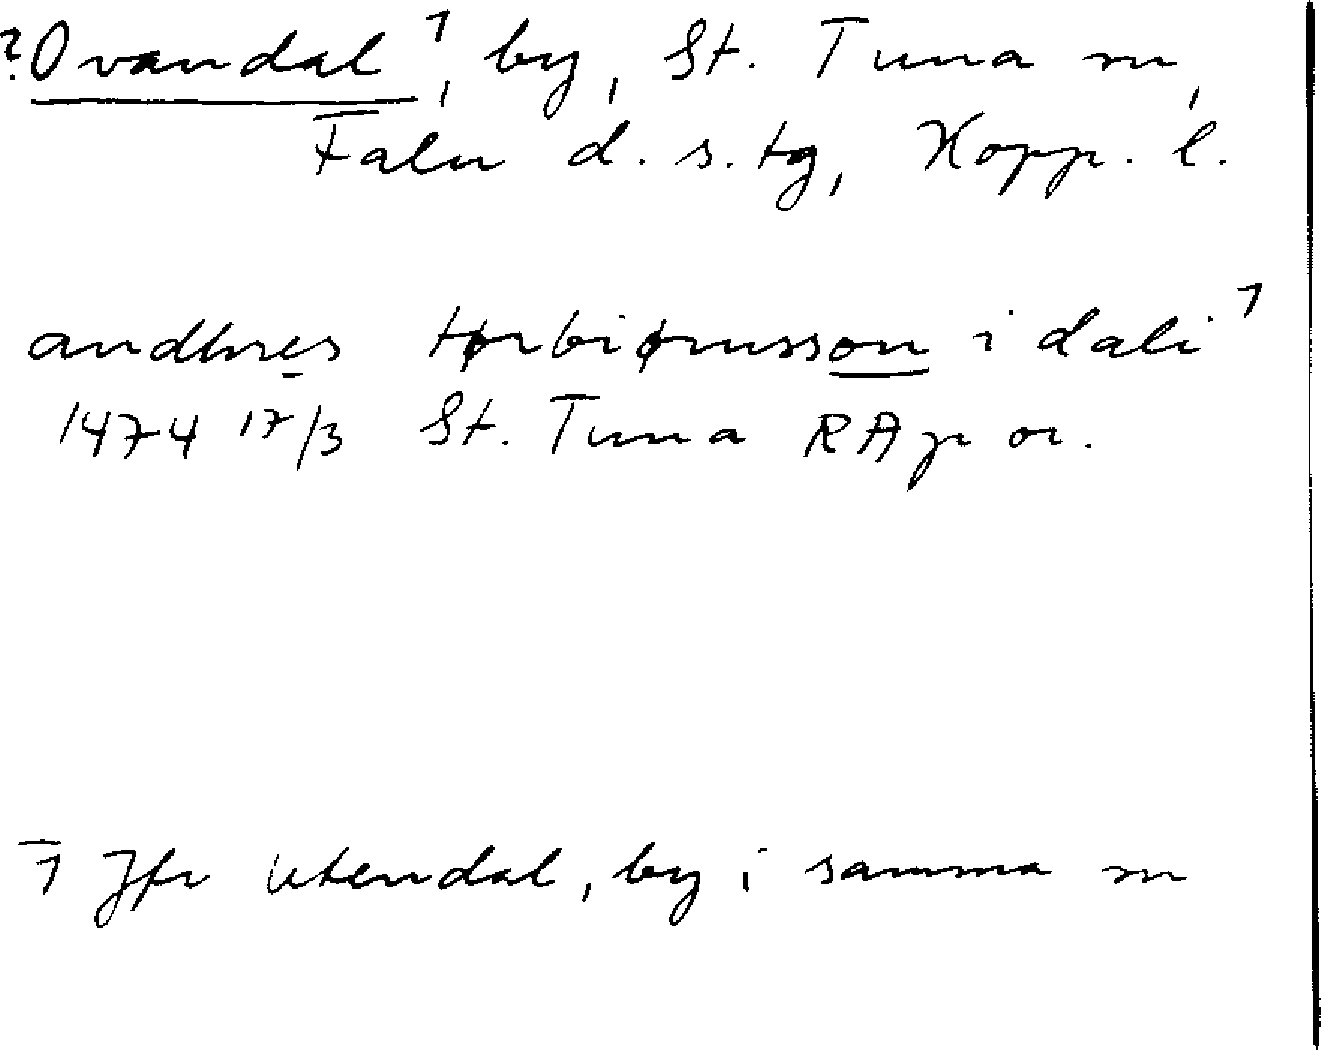 ?Ovandal¹, by, St. Tuna sn,
Falu d. s. tg, Kopp. l.
andhres tørbiørnsson i dali¹
1474 17/3 St. Tuna RAp or.
1 Jfr Utendal, by i samma sn